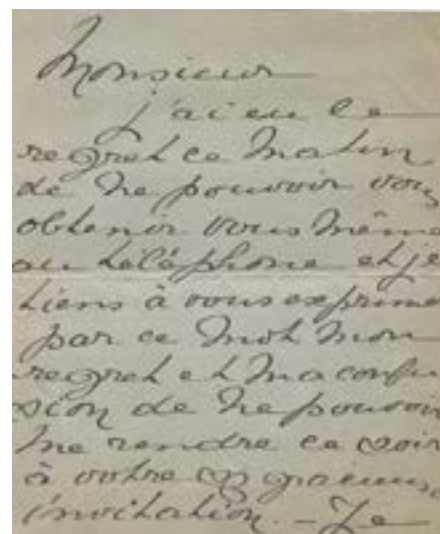 Monsieur
j'ai eu le
regret ce matin
de ne pouvoir vous
obtenir vous même
au téléphone et je
tiens à vous exprimer
par ce mot mon
regret et ma confu
sion de ne pouvoir
me rendre ce soir
à votre si gracieuse
invitation. – Je